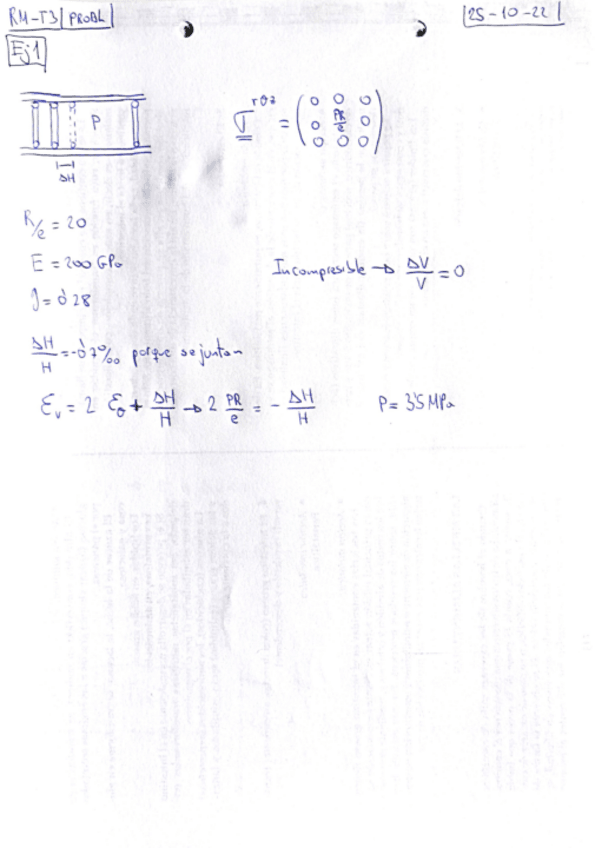 RM-T3 | PROBL | 25-10-22
Ej1
P
ΔH
σ^{rθz} = (0 0 0; 0 PR/e 0; 0 0 0)
R/e = 20
E = 200 GPa
Incompresible → ΔV/V = 0
ν = 0'28
ΔH/H = -0'7‰ porque se juntan
ε_v = 2 ε_θ + ΔH/H → 2 PR/e = - ΔH/H P = 3'5 MPa